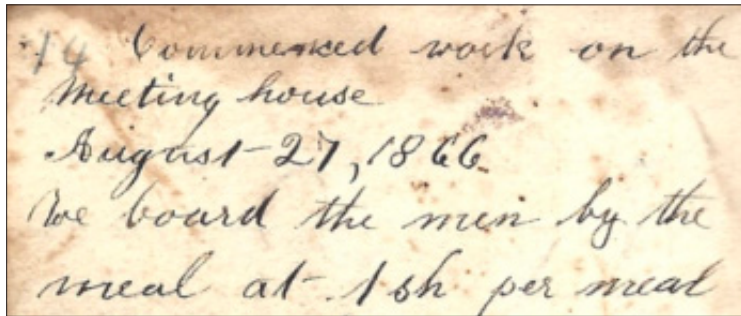 14 Commenced work on the
meeting house
August 27, 1866
We board the men by the
meal at 1 sh per meal